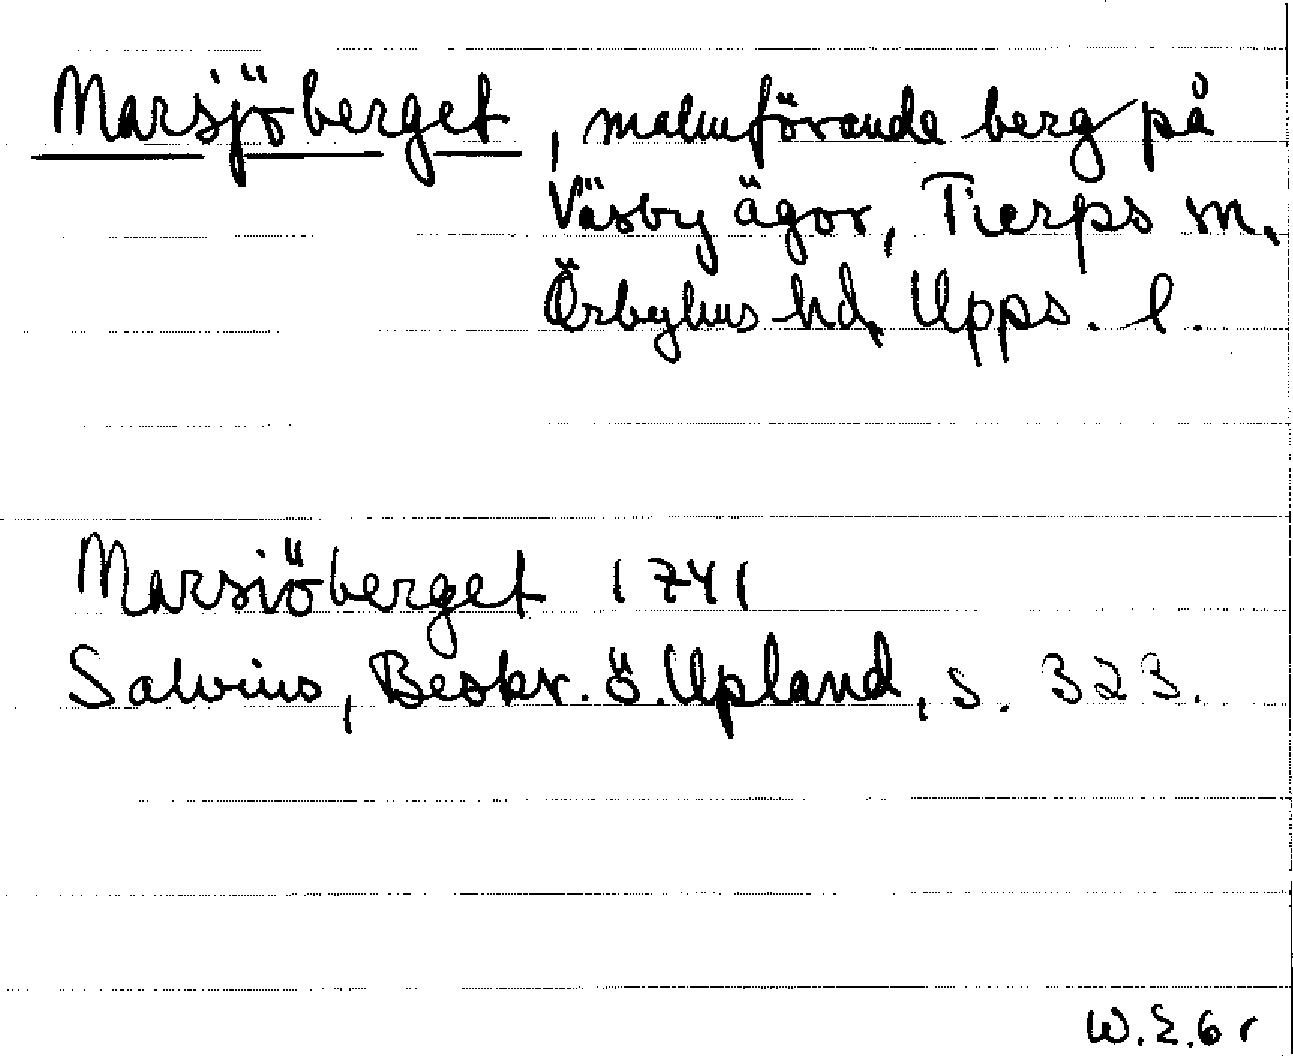 Marsjöberget, malmförande berg på
Väsby ägor, Tierps sn.
Örbyhus hd. Upps. l.
Marsiöberget 1741
Salvius, Beskr. ö. Upland, s. 323.
W.E.61